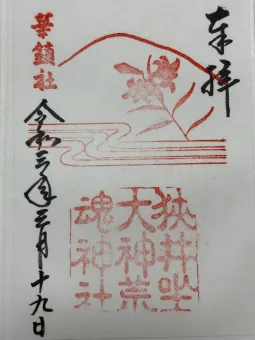 奉拝
華鎮社
狹井坐
大神荒
魂神社
令和三年三月十九日